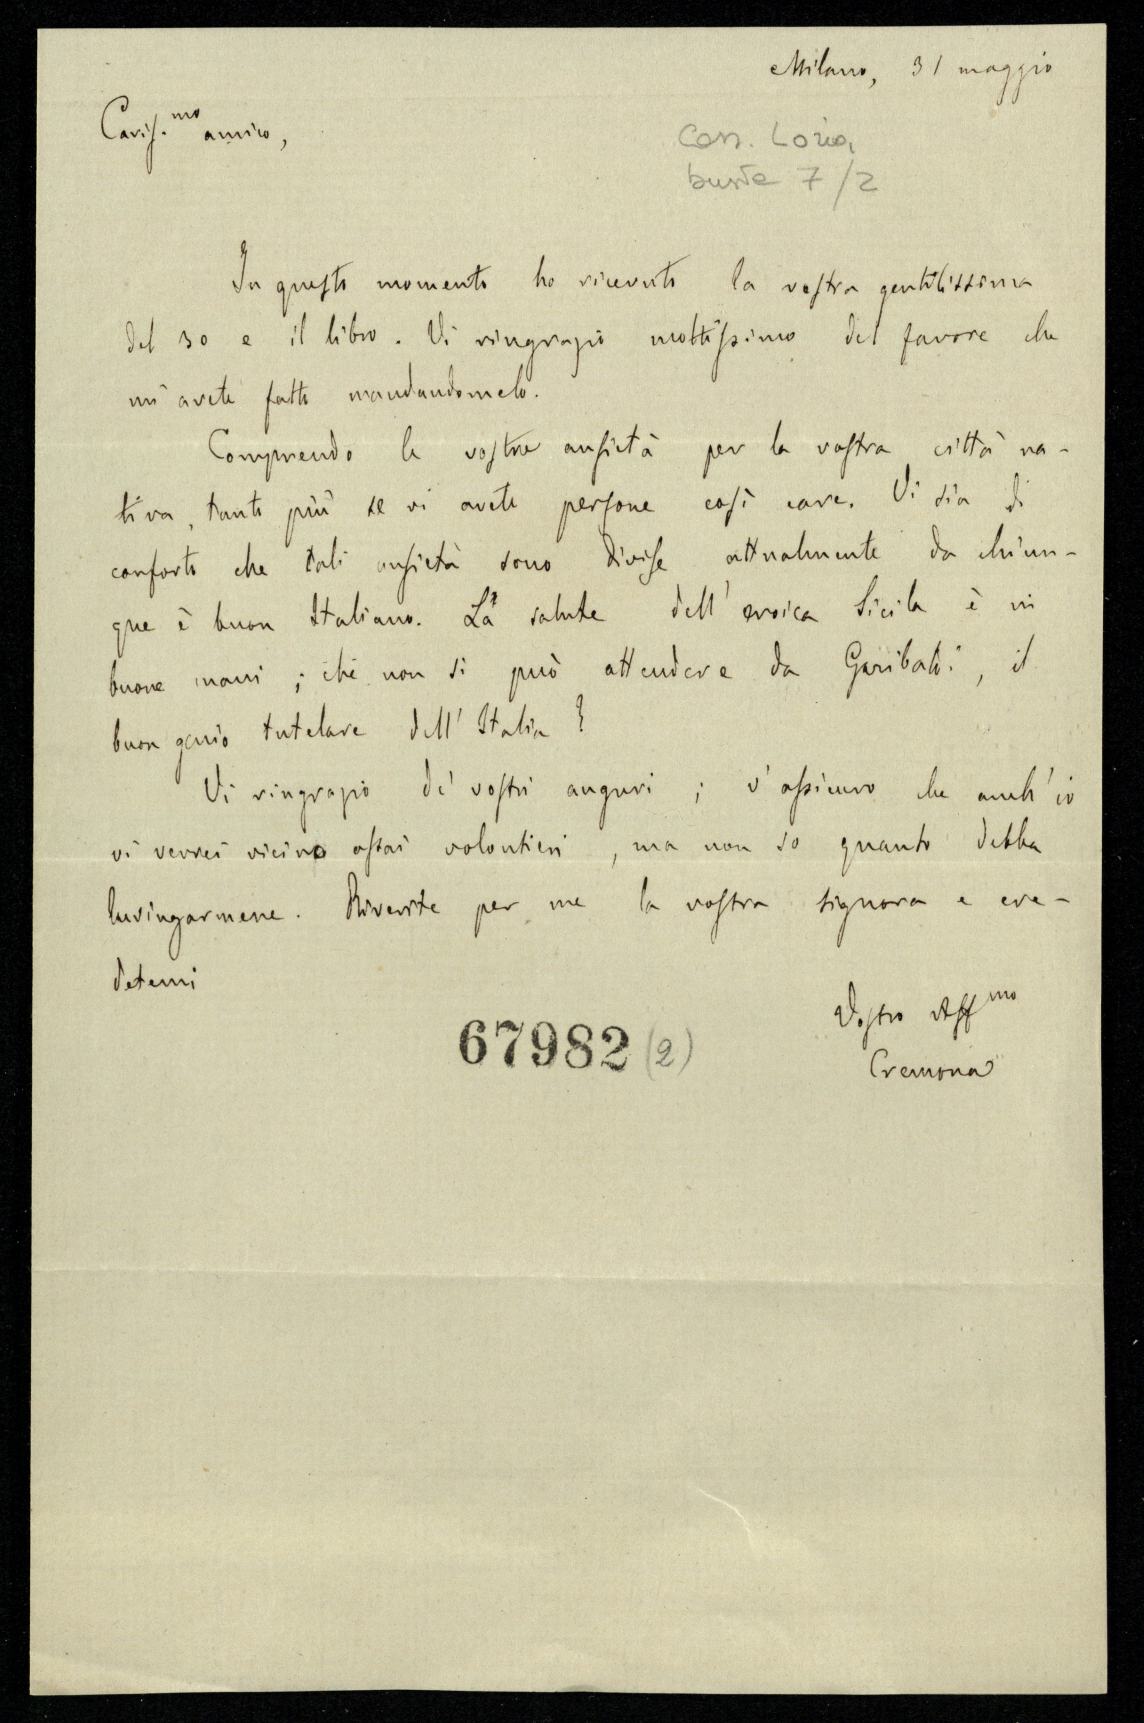 Milano, 31 maggio
Cariss.mo amico,
Cass. Loria,
busta 7/2
In questo momento ho ricevuto la vostra gentilissima
del 30 e il libro. Vi ringrazio moltissimo del favore che
mi avete fatto mandandomelo.
Comprendo le vostre ansietà per la vostra città na-
tiva, tanto più se vi avete persone così care. Vi sia di
conforto che tali ansietà sono divise attualmente da chiun-
que è buon Italiano. La salute dell'eroica Sicilia è in
buone mani; chè non si può attendere da Garibaldi, il
buon genio tutelare dell'Italia?
Vi ringrazio de' vostri auguri; v'assicuro che anch'io
vi verrei vicino assai volontieri, ma non so quanto debba
lusingarmene. Riverite per me la vostra signora e cre-
detemi
Vostro Aff.mo
Cremona
67982 (2)